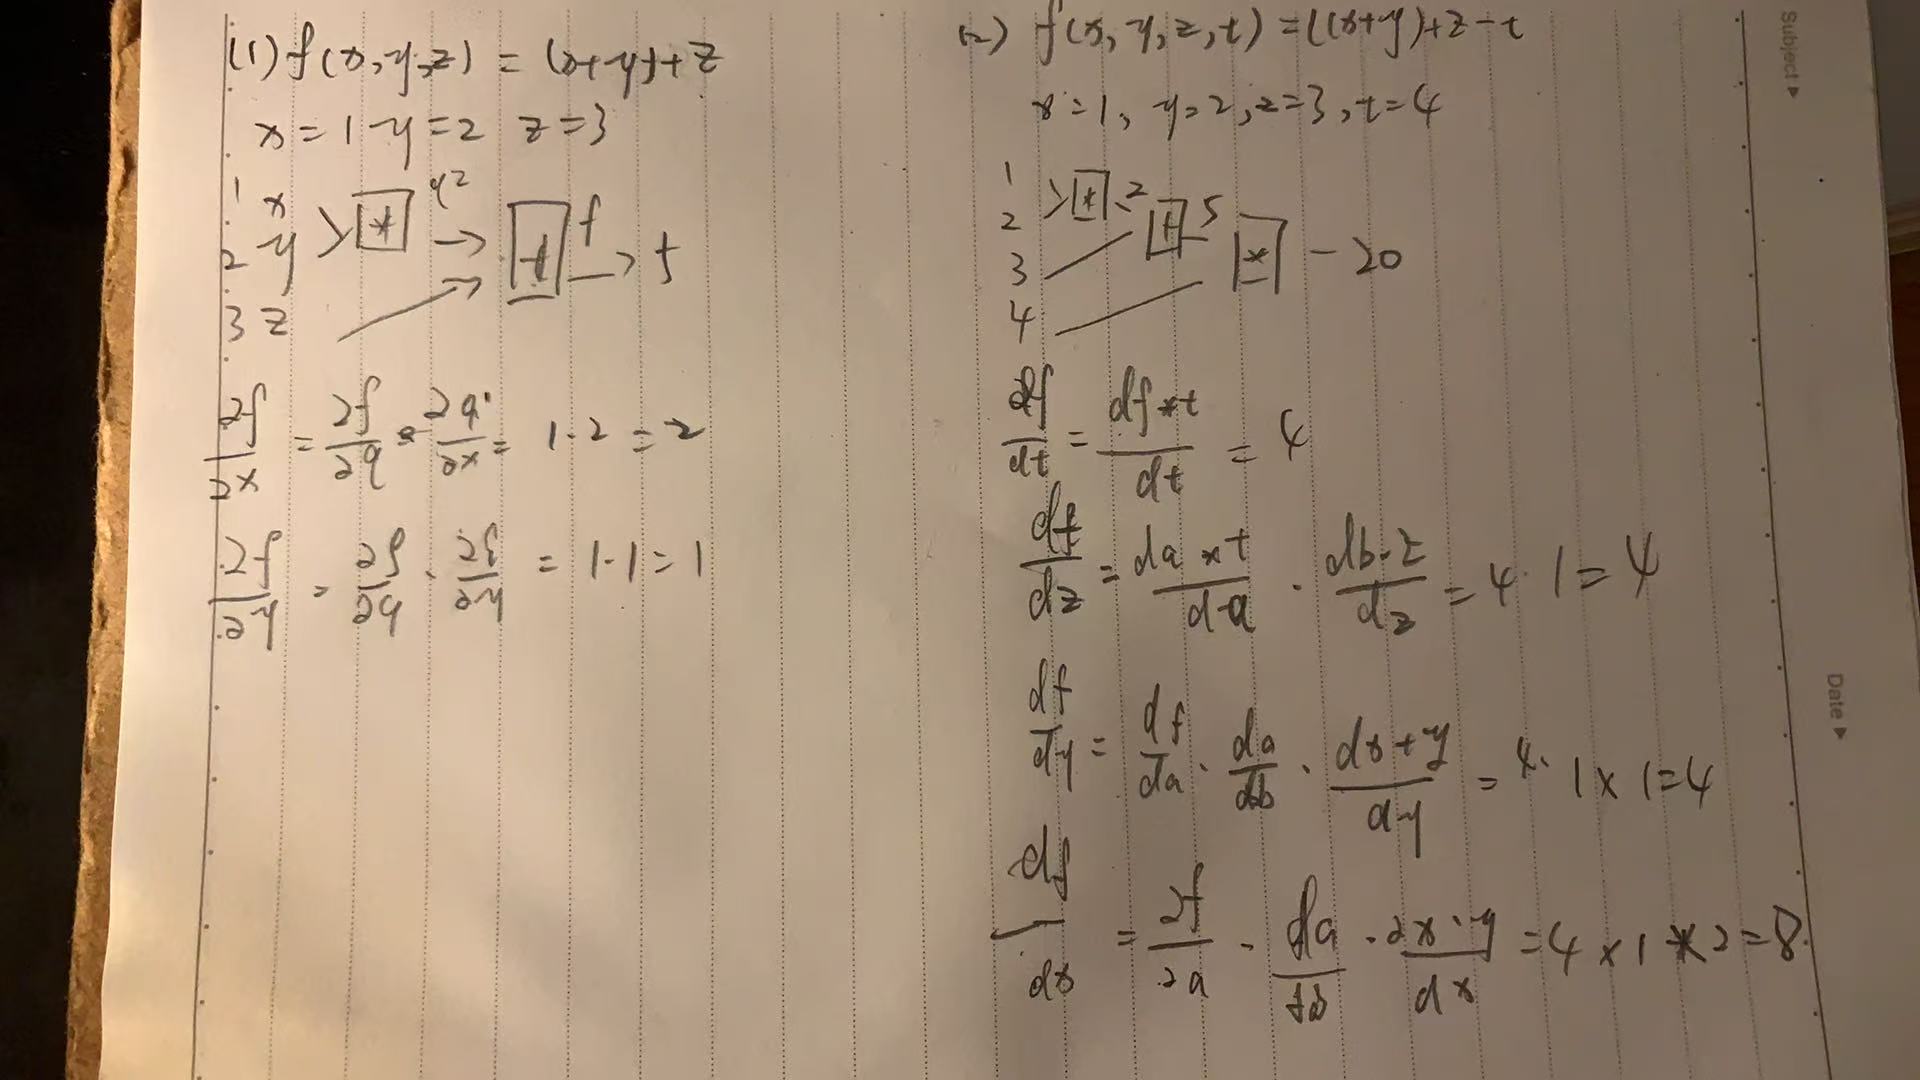 (1) f(x,y,z) = (x*y)+z
x=1 y=2 z=3
1 x
2 y > * q2 → + f → 5
3 z
∂f/∂x = ∂f/∂q · ∂q/∂x = 1·2 = 2
∂f/∂y = ∂f/∂q · ∂f/∂y = 1·1 = 1
(2) f(x,y,z,t) = ((x*y)+z-t
x=1, y=2, z=3, t=4
1
2 > * 2 + 5 * - 20
3
4
df/dt = df*t/dt = 4
df/dz = da*t/da · db·z/dz = 4·1 = 4
df/dy = df/da · da/db · dx+y/dy = 4·1×1=4
df/dx = ∂f/∂a · da/db · ∂x·y/dx = 4×1*2=8
Subject
Date